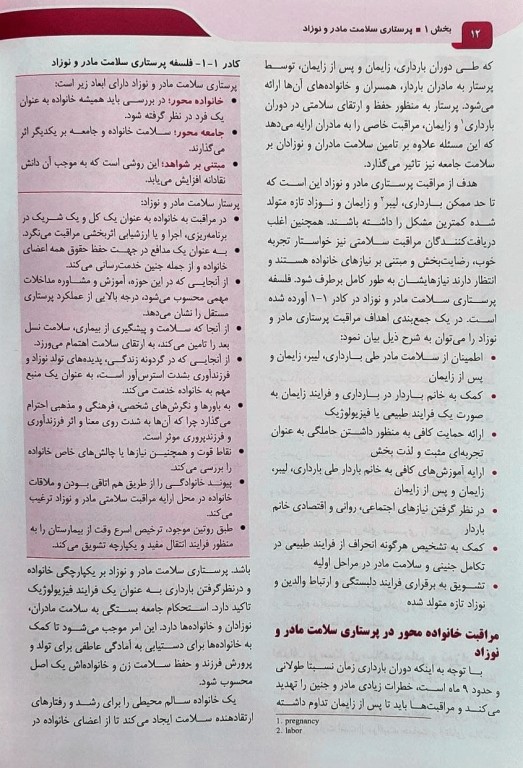 ۱۲
بخش ۱ ■ پرستاری سلامت مادر و نوزاد
که طی دوران بارداری، زایمان و پس از زایمان، توسط
پرستار به مادران باردار، همسران و خانواده‌های آن‌ها ارائه
می‌شود. پرستار به منظور حفظ و ارتقای سلامتی در دوران
بارداری¹ و زایمان، مراقبت خاصی را به مادران ارایه می‌دهد
که این مسئله علاوه بر تامین سلامت مادران و نوزادان بر
سلامت جامعه نیز تاثیر می‌گذارد.
هدف از مراقبت پرستاری مادر و نوزاد این است که
تا حد ممکن بارداری، لیبر² و زایمان و نوزاد تازه متولد
شده کمترین مشکل را داشته باشند. همچنین اغلب
دریافت‌کنندگان مراقبت سلامتی نیز خواستار تجربه
خوب، رضایت‌بخش و مبتنی بر نیازهای خانواده هستند و
انتظار دارند نیازهایشان به طور کامل برطرف شود. فلسفه
پرستاری سلامت مادر و نوزاد در کادر ۱-۱ آورده شده
است. در یک جمع‌بندی اهداف مراقبت پرستاری مادر و
نوزاد را می‌توان به شرح ذیل بیان نمود:
• اطمینان از سلامت مادر طی بارداری، لیبر، زایمان و
پس از زایمان
• کمک به خانم باردار در بارداری و فرایند زایمان به
صورت یک فرایند طبیعی یا فیزیولوژیک
• ارائه حمایت کافی به منظور داشتن حاملگی به عنوان
تجربه‌ای مثبت و لذت بخش
• ارایه آموزش‌های کافی به خانم باردار طی بارداری، لیبر،
زایمان و پس از زایمان
• در نظر گرفتن نیازهای اجتماعی، روانی و اقتصادی خانم
باردار
• کمک به تشخیص هرگونه انحراف از فرایند طبیعی در
تکامل جنینی و سلامت مادر در مراحل اولیه
• تشویق به برقراری فرایند دلبستگی و ارتباط والدین و
نوزاد تازه متولد شده
مراقبت خانواده محور در پرستاری سلامت مادر و
نوزاد
با توجه به اینکه دوران بارداری زمان نسبتا طولانی
و حدود ۹ ماه است، خطرات زیادی مادر و جنین را تهدید
می‌کند و مراقبت‌ها باید تا پس از زایمان تداوم داشته
1. pregnancy
2. labor
کادر ۱-۱- فلسفه پرستاری سلامت مادر و نوزاد
پرستاری سلامت مادر و نوزاد دارای ابعاد زیر است:
• خانواده محور؛ در بررسی باید همیشه خانواده به عنوان
یک فرد در نظر گرفته شود.
• جامعه محور؛ سلامت خانواده و جامعه بر یکدیگر اثر
می‌گذارند.
• مبتنی بر شواهد؛ این روشی است که به موجب آن دانش
نقادانه افزایش می‌یابد.
پرستار سلامت مادر و نوزاد:
• در مراقبت به خانواده به عنوان یک کل و یک شریک در
برنامه‌ریزی، اجرا و یا ارزشیابی اثربخشی مراقبت می‌نگرد.
• به عنوان یک مدافع در جهت حفظ حقوق همه اعضای
خانواده و از جمله جنین خدمت‌رسانی می‌کند.
• از آنجایی که در این حوزه، آموزش و مشاوره مداخلات
مهمی محسوب می‌شود، درجه بالایی از عملکرد پرستاری
مستقل را نشان می‌دهد.
• از آنجا که سلامت و پیشگیری از بیماری، سلامت نسل
بعد را تامین می‌کند، به ارتقای سلامت اهتمام می‌ورزد.
• از آنجایی که در گردونه زندگی، پدیده‌های تولد نوزاد و
فرزندآوری بشدت استرس‌آور است، به عنوان یک منبع
مهم به خانواده خدمت می‌کند.
• به باورها و نگرش‌های شخصی، فرهنگی و مذهبی احترام
می‌گذارد چرا که آن‌ها به شدت روی معنا و اثر فرزندآوری
و فرزندپروری موثر است.
• نقاط قوت و همچنین نیازها یا چالش‌های خاص خانواده
را بررسی می‌کند.
• پیوند خانوادگی را از طریق هم اتاقی بودن و ملاقات
خانواده در محل ارایه مراقبت سلامتی مادر و نوزاد ترغیب
می‌کند.
• طبق روتین موجود، ترخیص اسرع وقت از بیمارستان را به
منظور فرایند انتقال مفید و یکپارچه تشویق می‌کند.
باشد. پرستاری سلامت مادر و نوزاد بر یکپارچگی خانواده
و درنظرگرفتن بارداری به عنوان یک فرایند فیزیولوژیک
تاکید دارد. استحکام جامعه بستگی به سلامت مادران،
نوزادان و خانواده‌ها دارد. این امر موجب می‌شود تا کمک
به خانواده‌ها برای دستیابی به آمادگی عاطفی برای تولد و
پرورش فرزند و حفظ سلامت زن و خانواده‌اش یک اصل
محسوب شود.
یک خانواده سالم محیطی را برای رشد و رفتارهای
ارتقادهنده سلامت ایجاد می‌کند تا از اعضای خانواده در